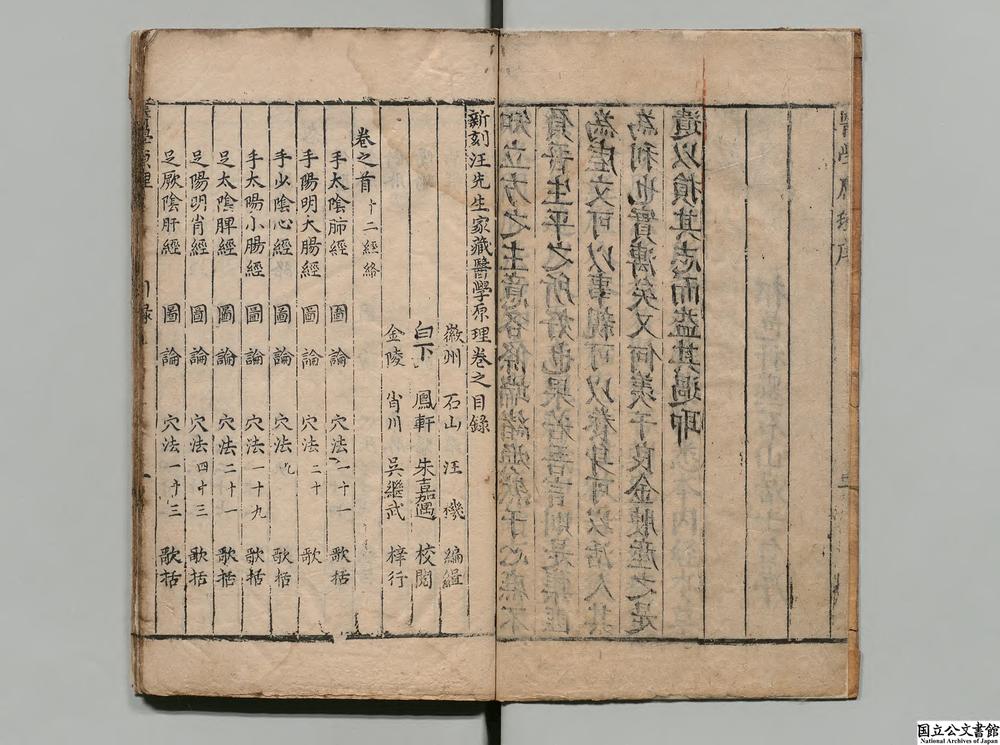 醫學原理序
知立方之主意各條端緒煥然于心庶不
負吾生平之所好也果若吾言則是集豈
為虛文可以事親可以養身可以活人其
為利也實溥矣又何羨于良金腴產之是
遺以損其志而益其過耶
新刻汪先生家藏醫學原理卷之目錄
徽州 石山 汪機 編緝
白下 鳳軒 朱嘉遇 校閱
金陵 肖川 吳繼武 梓行
卷之首 十二經絡
手太陰肺經 圖 論 穴法一十一 歌括
手陽明大腸經 圖 論 穴法二十 歌
手少陰心經 圖 論 穴法九 歌括
手太陽小腸經 圖 論 穴法一十九 歌括
足太陰脾經 圖 論 穴法二十一 歌括
足陽明胃經 圖 論 穴法四十三 歌括
足厥陰肝經 圖 論 穴法一十三 歌括
目錄
国立公文書館
National Archives of Japan